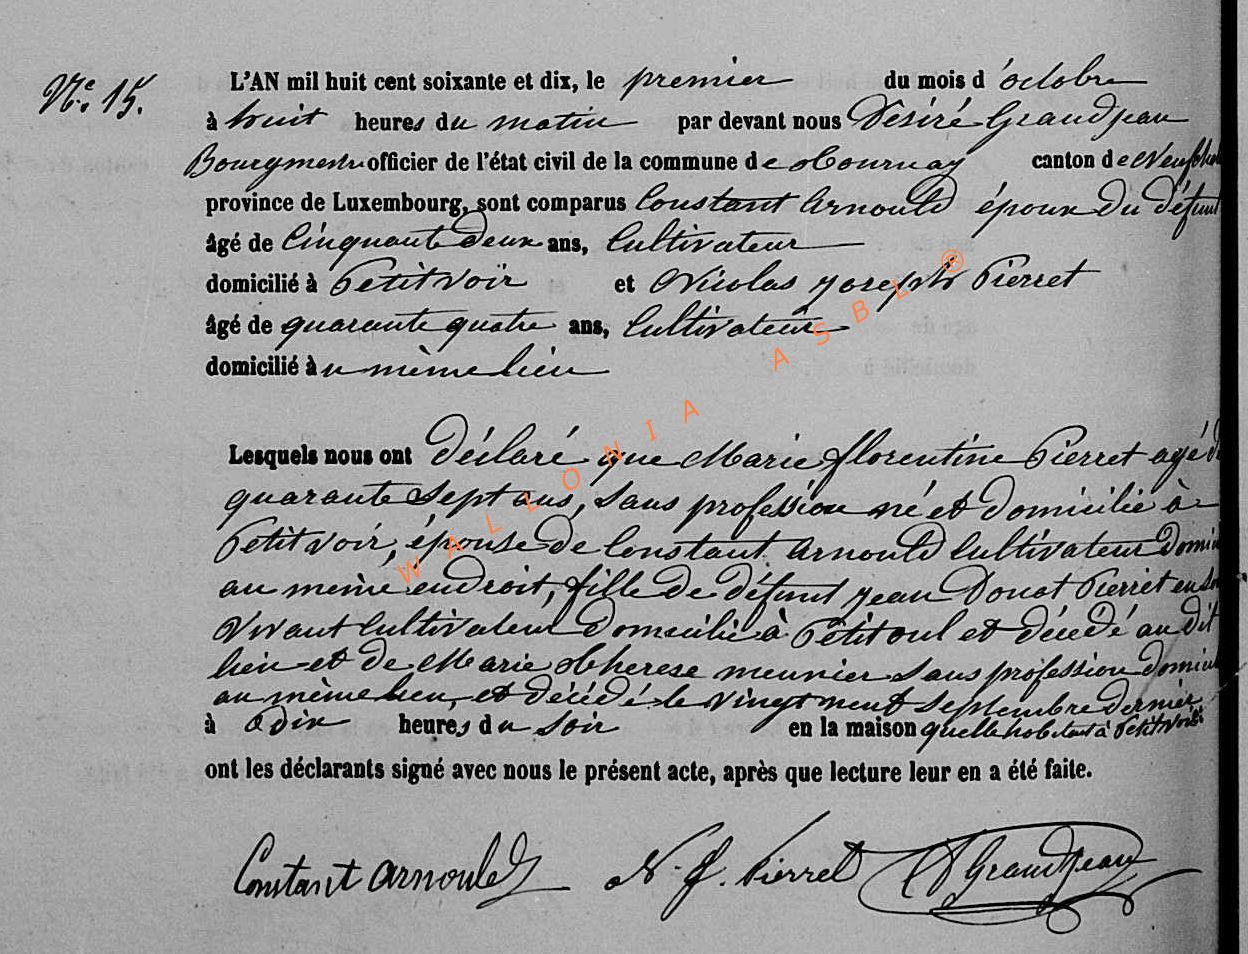 N.° 15.
L'AN mil huit cent soixante et dix, le premier du mois d'octobre
à huit heures du matin par devant nous Désiré Grandjean
Bourgmestre officier de l'état civil de la commune de Tournay canton de Neufchat
province de Luxembourg, sont comparus Constant Arnould époux du défunt
âgé de Cinquante deux ans, Cultivateur
domicilié à Petitvoir et Nicolas Joseph Pierret
âgé de quarante quatre ans, Cultivateur
domicilié àu même lieu
Lesquels nous ont Déclaré que Marie florentine Pierret agé de
quarante Sept ans, Sans profession né et domicilié à
Petitvoir, épouse de Constant Arnould Cultivateur Domici
au même endroit, fille de défunt Jean Donat Pierret en son
Vivant Cultivateur Domicilié à Petitvoir et décédé au dit
lieu et de Marie Therese meunier Sans profession domicil
au même lieu, et décédé le vingt neuf Septembre dernier
à à dix heures du soir en la maison quelle habitant à Petitvoir
ont les déclarants signé avec nous le présent acte, après que lecture leur en a été faite.
Constant Arnould N. J. Pierret D Grandjean
WALLONIA ASBL ®